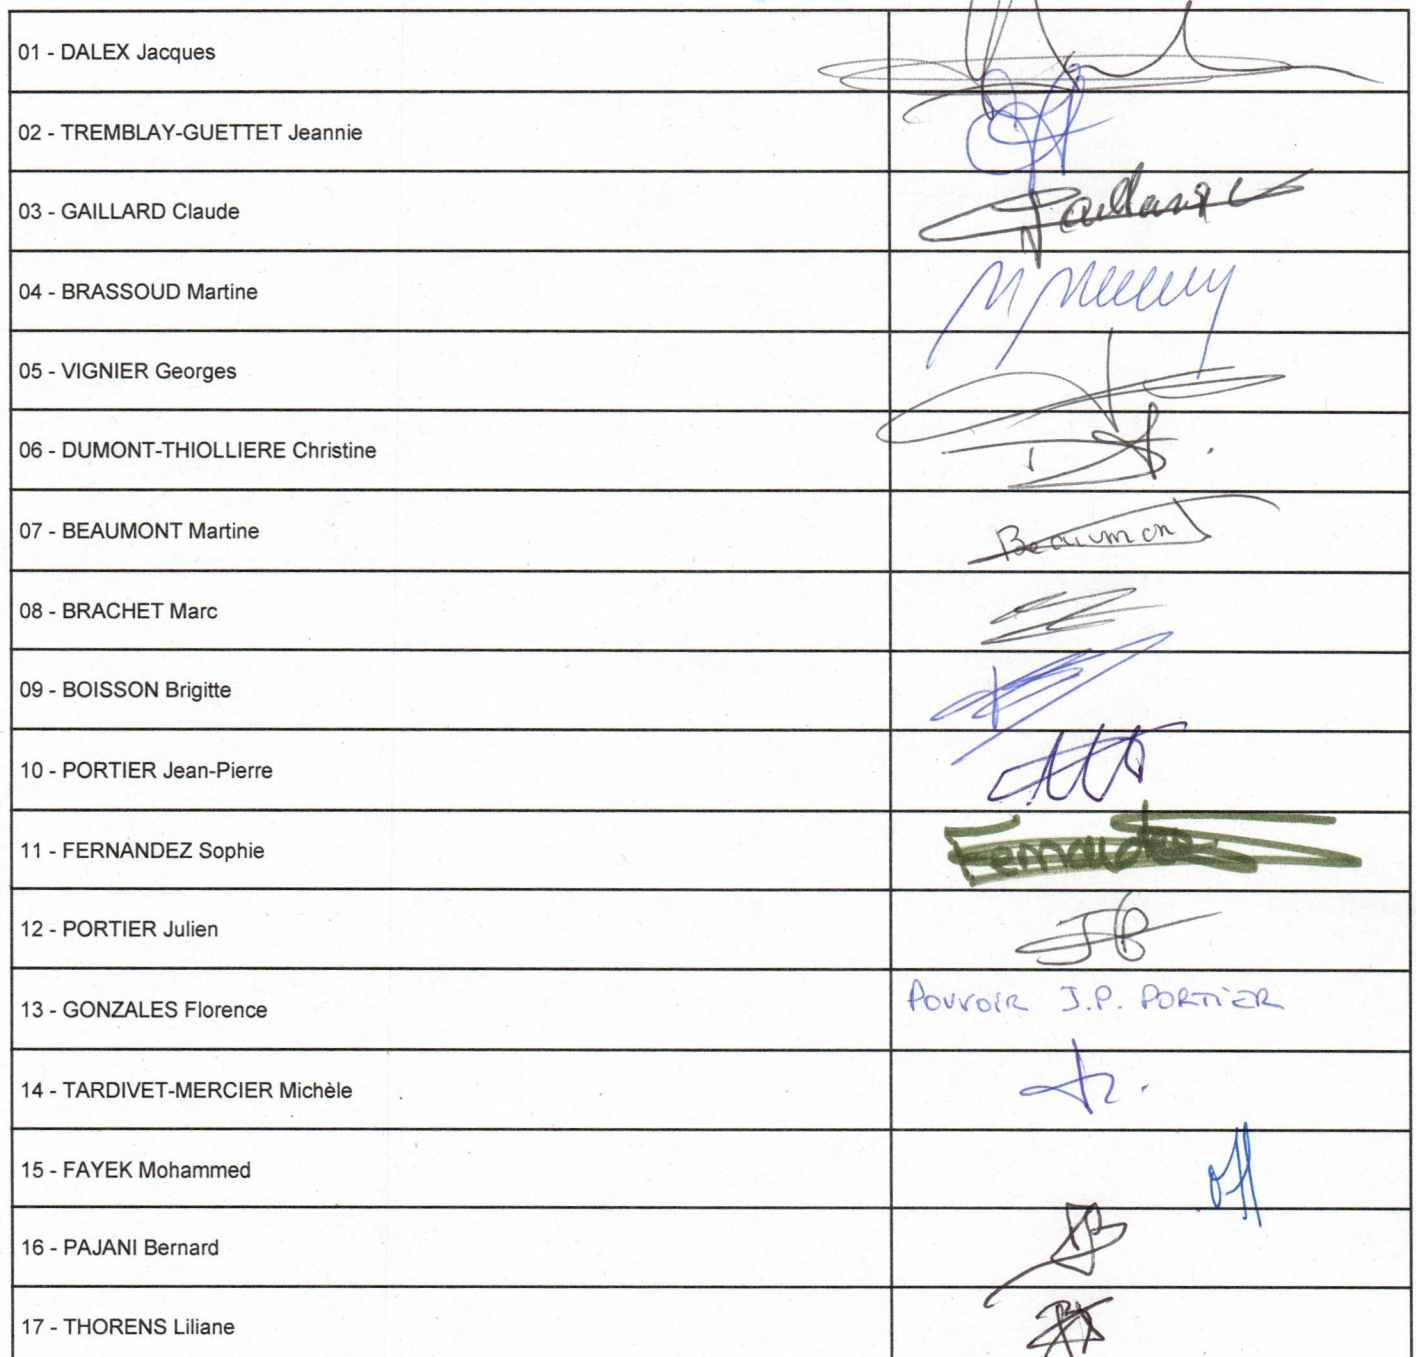 01 - DALEX Jacques
02 - TREMBLAY-GUETTET Jeannie
03 - GAILLARD Claude
04 - BRASSOUD Martine
05 - VIGNIER Georges
06 - DUMONT-THIOLLIERE Christine
07 - BEAUMONT Martine Beaumont
08 - BRACHET Marc
09 - BOISSON Brigitte
10 - PORTIER Jean-Pierre
11 - FERNANDEZ Sophie Fernandez
12 - PORTIER Julien
13 - GONZALES Florence POUVOIR J.P. PORTIER
14 - TARDIVET-MERCIER Michèle
15 - FAYEK Mohammed
16 - PAJANI Bernard
17 - THORENS Liliane